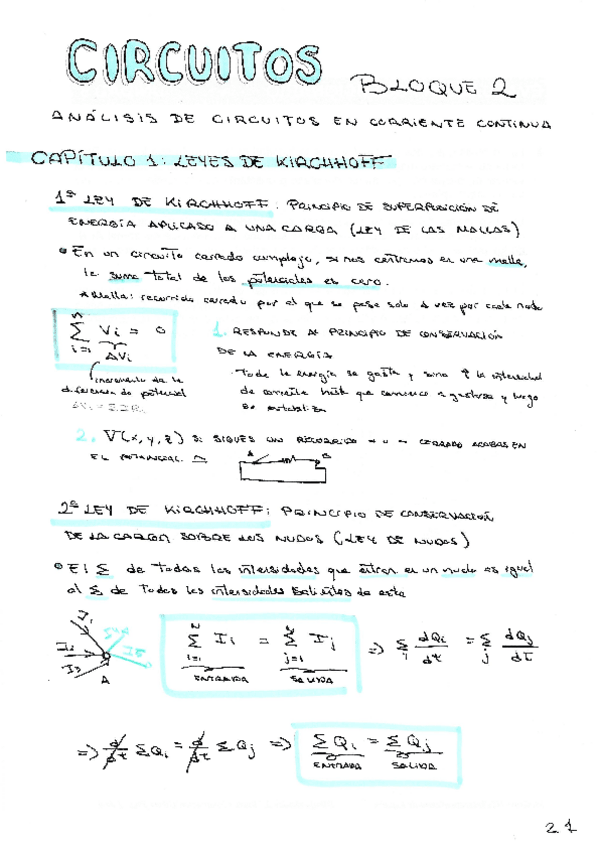 CIRCUITOS BLOQUE 2
ANÁLISIS DE CIRCUITOS EN CORRIENTE CONTINUA
CAPÍTULO 1: LEYES DE KIRCHHOFF
1ª LEY DE KIRCHHOFF: PRINCIPIO DE SUPERPOSICIÓN DE
ENERGÍA APLICADO A UNA CARGA (LEY DE LAS MALLAS)
En un circuito cerrado complejo, si nos centramos en una malla,
la suma total de los potenciales es cero.
* Malla: recorrido cerrado por el que se pasa solo 1 vez por cada nudo
n
Σ Vi = 0
i=1 ΔVi
incremento de la
diferencia de potencial
1. RESPONDE AL PRINCIPIO DE CONSERVACIÓN
DE LA ENERGÍA
Toda la energía se gasta y sino ↑ la intensidad
de corriente hasta que comience a gastarse y luego
se estabiliza
2. V(x,y,z) SI SIGUES UN RECORRIDO CERRADO ACABAS EN
EL POTENCIAL
A B
2ª LEY DE KIRCHHOFF: PRINCIPIO DE CONSERVACIÓN
DE LA CARGA SOBRE LOS NUDOS (LEY DE NUDOS)
El Σ de todas las intensidades que entran en un nudo es igual
al Σ de todas las intensidades salientes de esta
I1
I2
I3
I5
A
Σ Ii = Σ Ij
i=1 j=1
ENTRADA SALIDA
=> Σ dQi/dt = Σ dQj/dt
i j
=> d/dt Σ Qi = d/dt Σ Qj => Σ Qi = Σ Qj
ENTRADA SALIDA
21